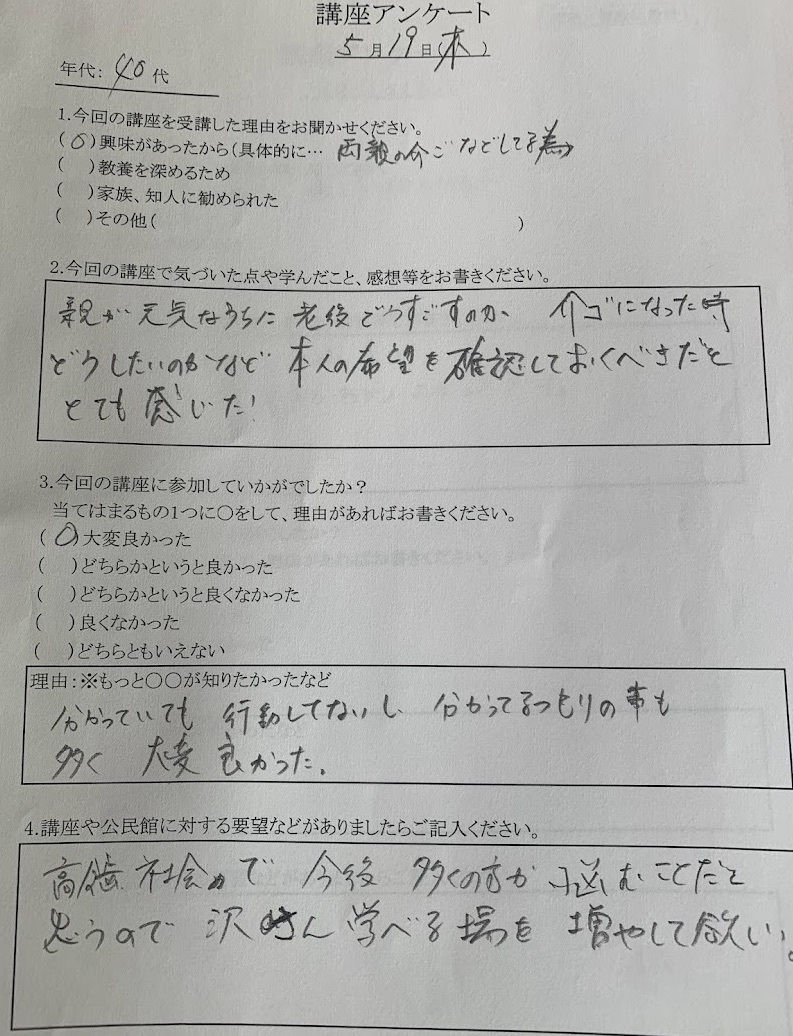 講座アンケート
5月19日(木)
年代: 40代
1.今回の講座を受講した理由をお聞かせください。
(○)興味があったから(具体的に… 両親の介ごなどしてる為)
( )教養を深めるため
( )家族、知人に勧められた
( )その他( )
2.今回の講座で気づいた点や学んだこと、感想等をお書きください。
親が元気なうちに 老後どうすごすのか、 介ゴになった時
どうしたいのかなど 本人の希望を確認しておくべきだと
とても感じた!
3.今回の講座に参加していかがでしたか?
当てはまるもの1つに○をして、理由があればお書きください。
(○)大変良かった
( )どちらかというと良かった
( )どちらかというと良くなかった
( )良くなかった
( )どちらともいえない
理由:※もっと○○が知りたかったなど
分かっていても 行動してないし 分かってるつもりの事も
多く 大変良かった。
4.講座や公民館に対する要望などがありましたらご記入ください。
高齢社会で 今後 多くの方が 悩むことだと
思うので 沢さん 学べる場を 増やして欲しい。